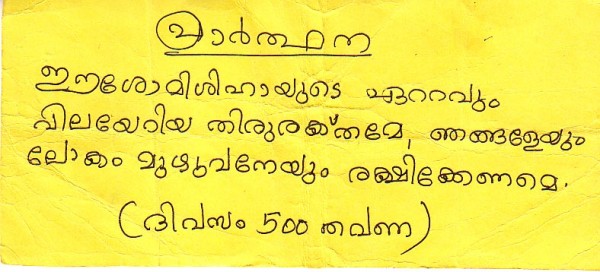 പ്രാർത്ഥന
ഈശോമിശിഹായുടെ ഏററവും
വിലയേറിയ തിരുരക്തമേ, ഞങ്ങളേയും
ലോകം മുഴുവനേയും രക്ഷിക്കേണമെ.
(ദിവസം 500 തവണ)